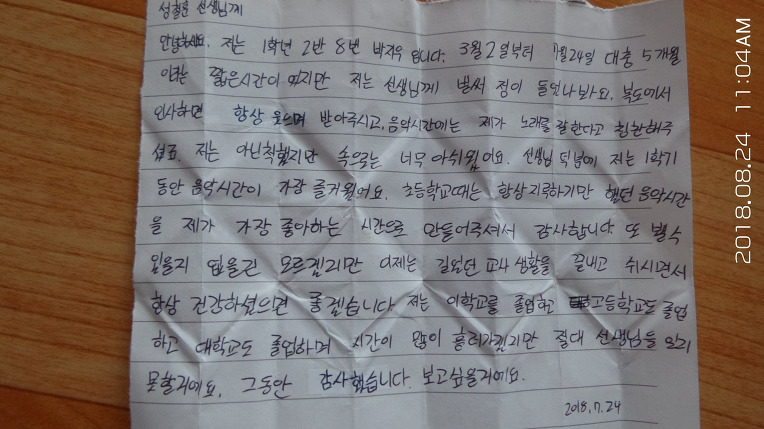 성철훈 선생님께
안녕하세요. 저는 1학년 2반 8번 박지우 입니다. 3월 2일부터 7월24일 대충 5개월
이라는 짧은시간이 였지만 저는 선생님께 벌써 정이 들었나봐요. 복도에서
인사하면 항상 웃으며 받아주시고, 음악시간에는 제가 노래를 잘 한다고 칭찬해주
셨죠. 저는 아닌척했지만 속으로는 너무 아쉬웠어요. 선생님 덕분에 저는 1학기
동안 음악시간이 가장 즐거웠어요. 초등학교때는 항상 지루하기만 했던 음악시간
을 제가 가장 좋아하는 시간으로 만들어주셔서 감사합니다 또 뵐수
있을지 없을진 모르겠지만 이제는 길었던 교사 생활을 끝내고 쉬시면서
항상 건강하셨으면 좋겠습니다. 저는 이학교를 졸업하고 고등학교도 졸업
하고 대학교도 졸업하며 시간이 많이 흘러가겠지만 절대 선생님을 잊지
못할거에요. 그동안 감사했습니다. 보고싶을거에요.
2018.7.24
2018.08.24 11:04AM